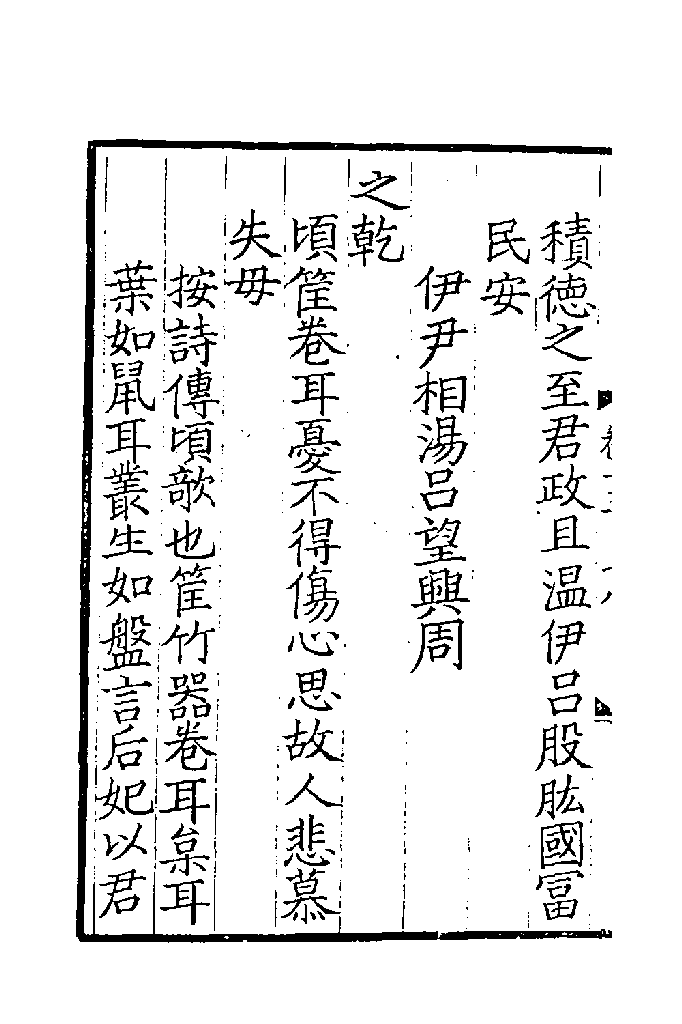 積德之至君政且溫伊呂股肱國富
民安
伊尹相湯呂望興周
之乾
頃筐卷耳憂不得傷心思故人悲慕
失毋
按詩傳頃欹也筐竹器卷耳枲耳
葉如鼠耳叢生如盤言后妃以君